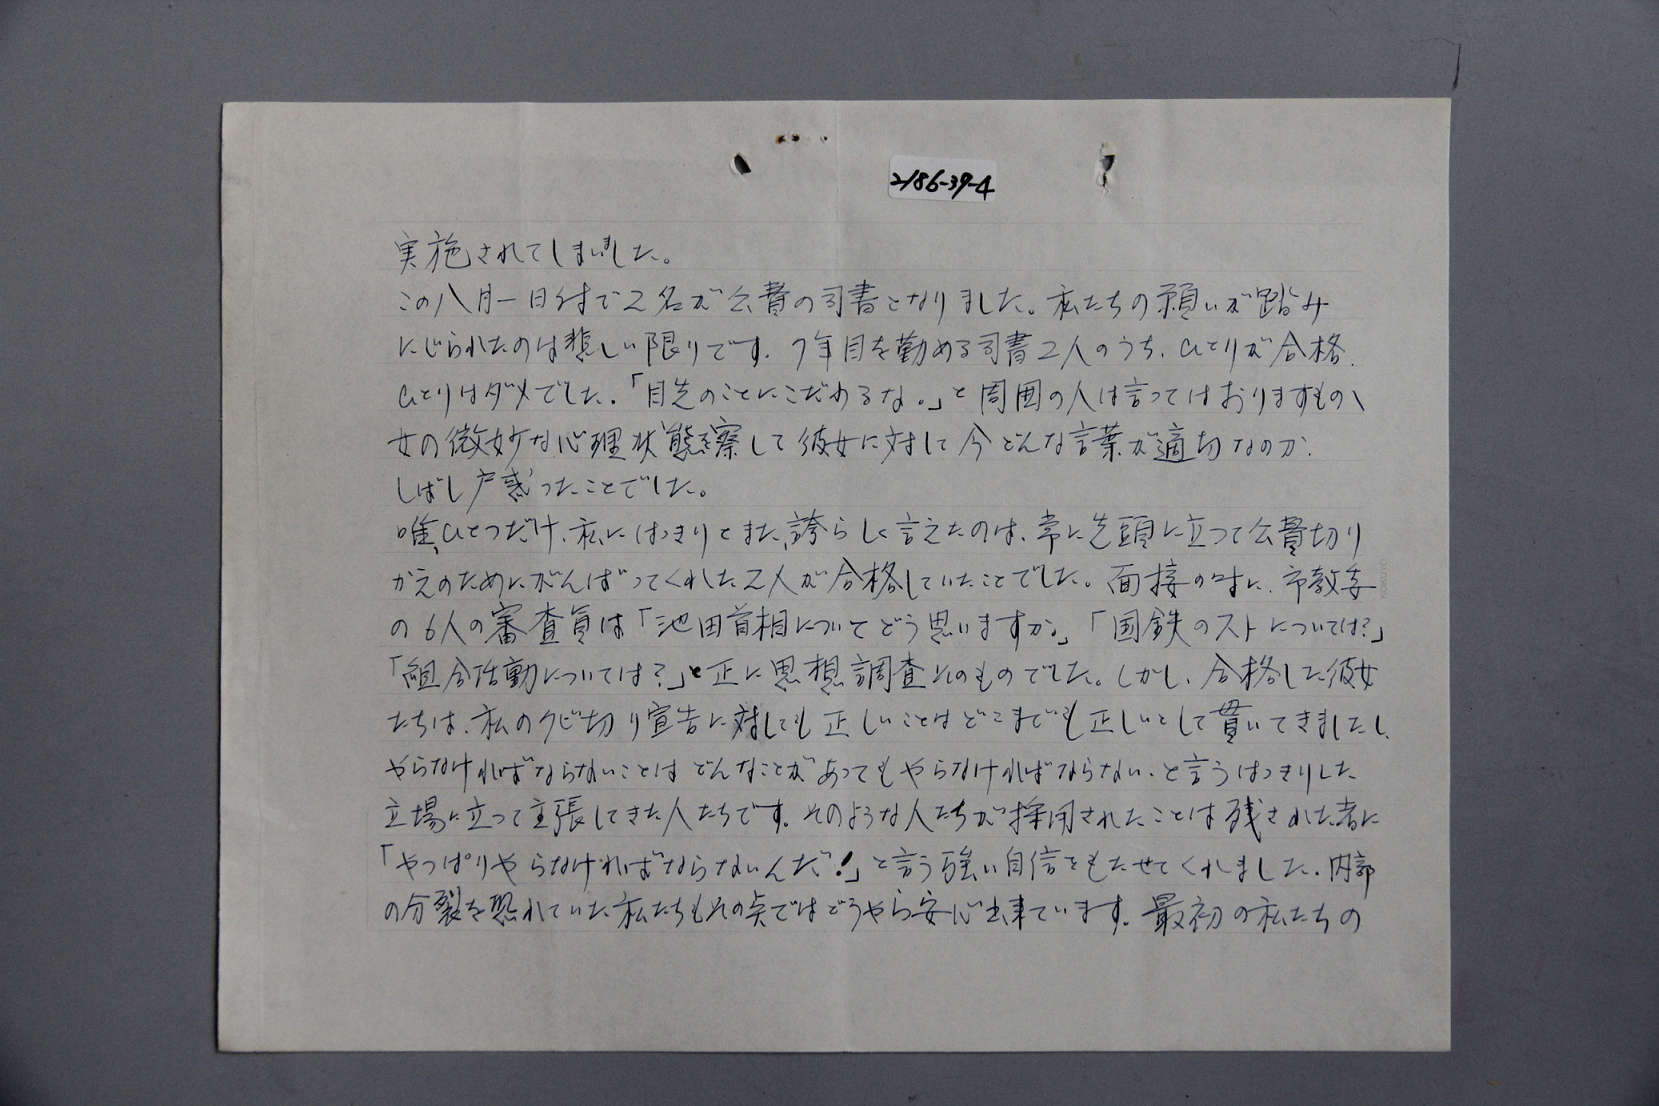 2186-39-4
実施されてしまいました。
この八月一日付で2名が公費の司書となりました。私たちの願いが踏み
にじられたのは悲しい限りです。7年目を勤める司書2人のうち、ひとりが合格、
ひとりはダメでした。「目先のことにこだわるな。」と周囲の人は言ってはおりますものゝ
女の微妙な心理状態を察して彼女に対して今どんな言葉が適切なのか、
しばし戸惑ったことでした。
唯、ひとつだけ、私にはっきりとまた、誇らしく言えたのは、常に先頭に立って公費切り
かえのためにがんばってくれた2人が合格していたことでした。面接の時に、市教委
の6人の審査員は「池田首相についてどう思いますか。」「国鉄のストについては?」
「組合活動については?」と正に思想調査そのものでした。しかし、合格した彼女
たちは、私のクビ切り宣告に対しても正しいことはどこまでも正しいとして貫いてきましたし、
やらなければならないことはどんなことがあってもやらなければならない、と言うはっきりした
立場に立って主張してきた人たちです。そのような人たちが採用されたことは残された者に
「やっぱりやらなければならないんだ!」と言う強い自信をもたせてくれました。内部
の分裂を恐れていた私たちもその点ではどうやら安心出来ています。最初の私たちの